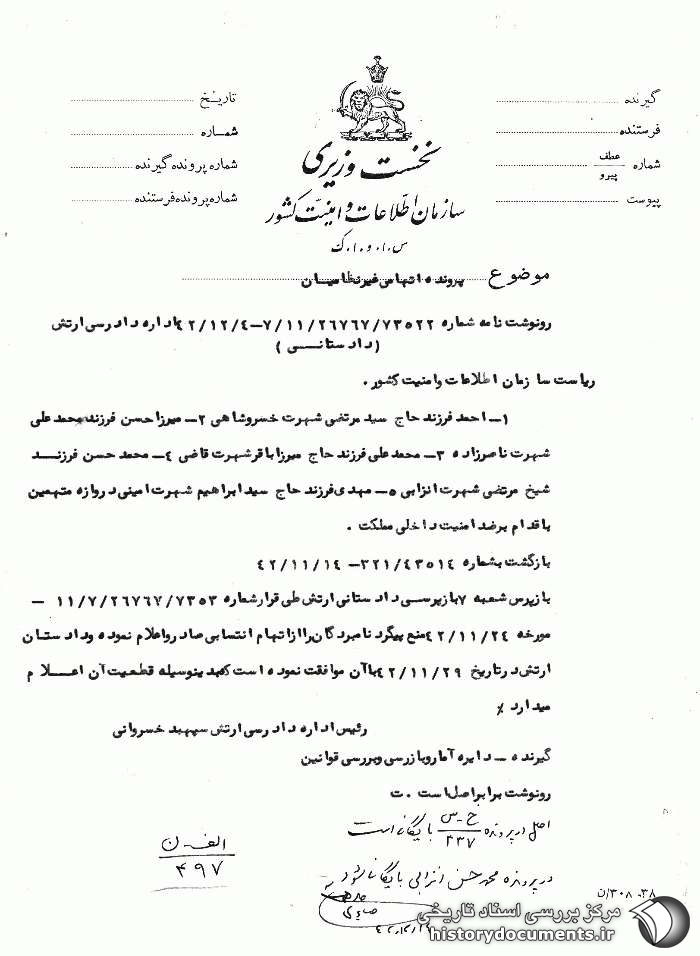 گیرنده
فرستنده
شماره عطف پیرو
پیوست
نخست وزیری
سازمان اطلاعات و امنیت کشور
س.ا.و.ا.ک
تاریخ
شماره
شماره پرونده گیرنده
شماره پرونده فرستنده
موضوع پرونده اتهامی غیرنظامیان
رونوشت نامه شماره ۷/۱۱/۲۶۷۶۷/۷۳۵۲۲-۴۲/۱۲/۴ اداره دادرسی ارتش
(دادستانی)
ریاست سازمان اطلاعات وامنیت کشور.
۱- احمد فرزند حاج سید مرتضی شهرت خسروشاهی ۲- میرزا حسن فرزند محمدعلی
شهرت ناصرزاده ۳- محمدعلی فرزند حاج میرزا باقر شهرت قاضی ۴- محمد حسن فرزند
شیخ مرتضی شهرت انزابی ۵- مهدی فرزند حاج سید ابراهیم شهرت امینی دروازه متهمین
باقدام برضد امنیت داخلی مملکت.
بازگشت بشماره ۳۲۱/۴۳۵۱۴- ۴۲/۱۱/۱۴
بازپرس شعبه ۷ بازپرسی دادستانی ارتش طی قرار شماره ۱۱/۷/۲۶۷۶۷/۷۳۵۳ -
مورخه ۴۲/۱۱/۲۴ منع پیگرد نامبردگان را از اتهام انتسابی صادر واعلام نموده ودادستان
ارتش در تاریخ ۴۲/۱۱/۲۹ باآن موافقت نموده است که بدینوسیله قطعیت آن اعلام
میدارد ٪
رئیس اداره دادرسی ارتش سپهبد خسروانی
گیرنده - دایره آمار وبازرسی وبررسی قوانین
رونوشت برابر اصل است. ت
اصل در پرونده ح-س ۲۳۷ بایگانی است
الف-ن
۴۹۷
در پرونده محمد حسن انزابی بایگانی شود
۳۸-۳۰۸/ن
مرکز بررسی اسناد تاریخی
historydocuments.ir